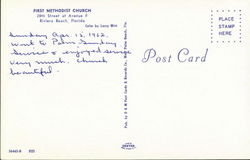 FIRST METHODIST CHURCH
28th Street at Avenue F
Riviera Beach, Florida
Color by Leroy Mint
PLACE
STAMP
HERE
Post Card
Sunday Apr. 15, 1962.
Went to Palm Sunday
Service & enjoyed service
very much. Church
beautiful.